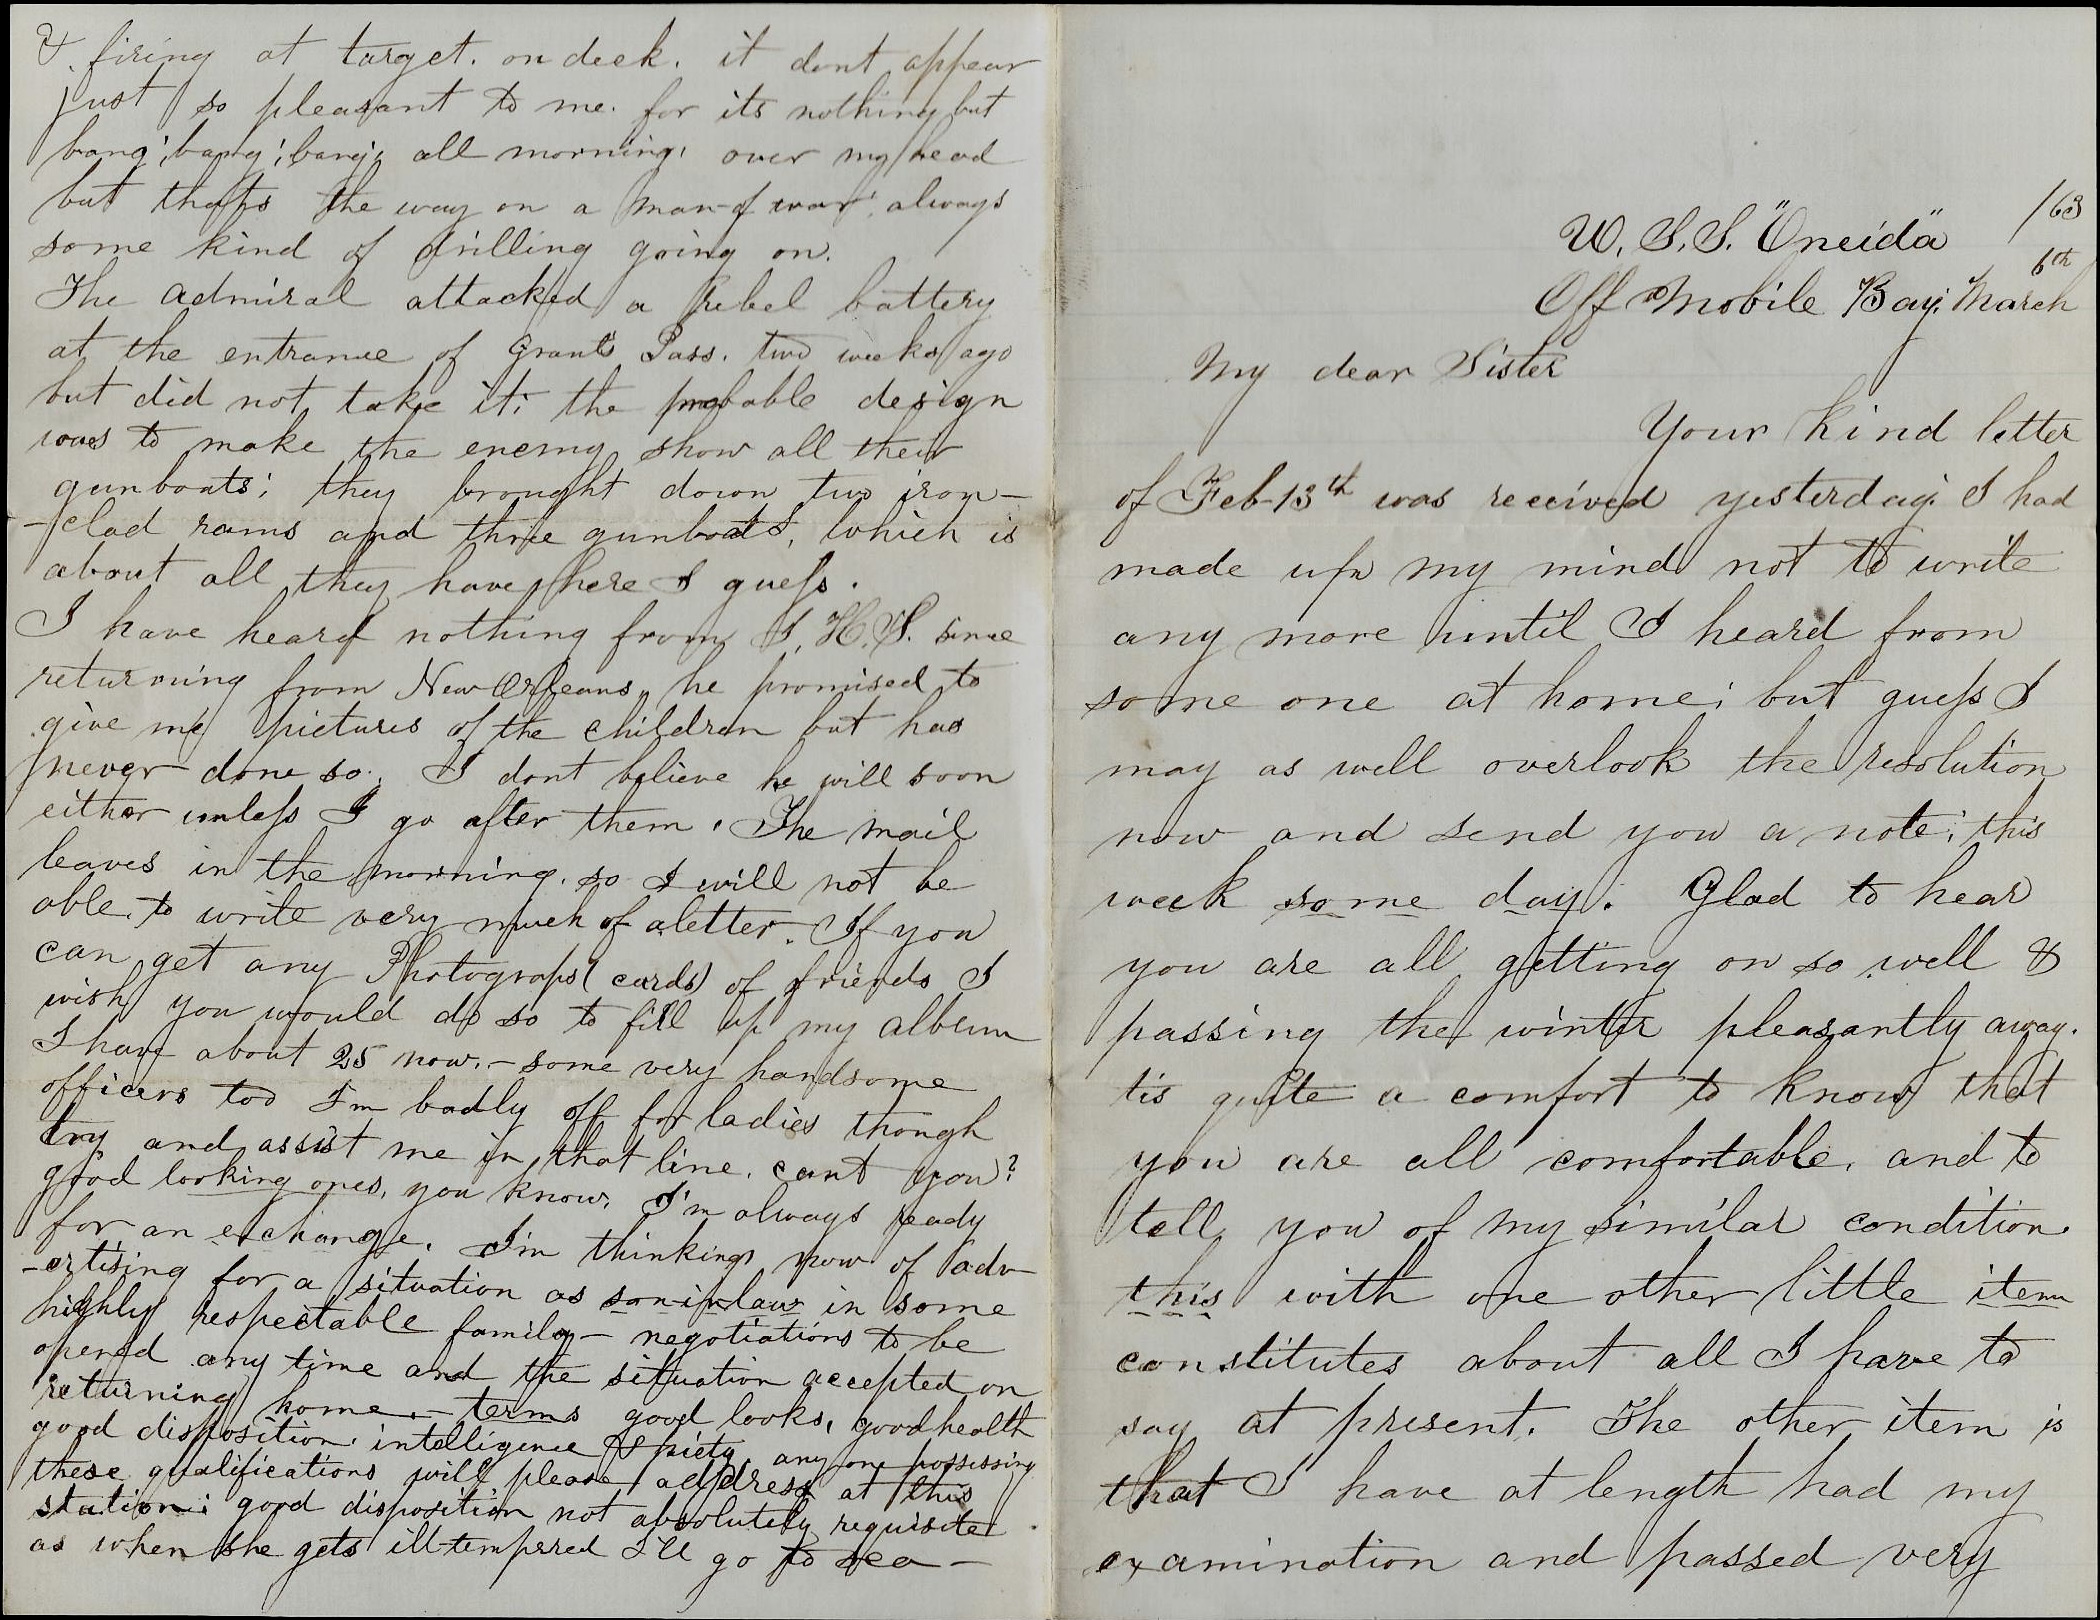 & firing at target. on deck. it dont appear
just so pleasant to me. for its nothing but
bang; bang; bang; all morning. over my head
but thats the way on a man-of war; always
some kind of drilling going on.
The Admiral attacked a rebel battery
at the entrance of Grants Pass. two weeks ago
but did not take it; the probable design
was to make the enemy show all their
gunboats; they brought down two iron-
-clad rams and three gunboats, which is
about all they have here I guess.
I have heard nothing from J. H. S. since
returning from New Orleans, he promised to
give me pictures of the children but has
never done so. I dont believe he will soon
either unless I go after them. The mail
leaves in the morning. so I will not be
able to write very much of a letter. If you
can get any Photograps (cards) of friends I
wish you would do so to fill up my album
I have about 25 now. - some very handsome
officers too I'm badly off for ladies though
try and assist me in that line. cant you?
good looking ones, you know. I'm always ready
for an exchange. I'm thinking now of adv-
-ertising for a situation as son-in-law in some
highly respectable family - negotiations to be
opened any time and the situation accepted on
returning home. - terms good looks, good health
good disposition intelligence & piety any one possessing
these qualifications will please address at this
station; good disposition not absolutely requisite
as when she gets ill-tempered I'll go to sea -
/63
U. S. S. "Oneida"
6th
Off Mobile Bay; March
My dear Sister
Your kind letter
of Feb-13th was received yesterday. I had
made up my mind not to write
any more until I heard from
some one at home; but guess I
may as well overlook the resolution
now and send you a note; this
week some day. Glad to hear
you are all getting on so well &
passing the winter pleasantly away.
tis quite a comfort to know that
you are all comfortable. and to
tell you of my similar condition
this with one other little item
constitutes about all I have to
say at present. The other item is
that I have at length had my
examination and passed very